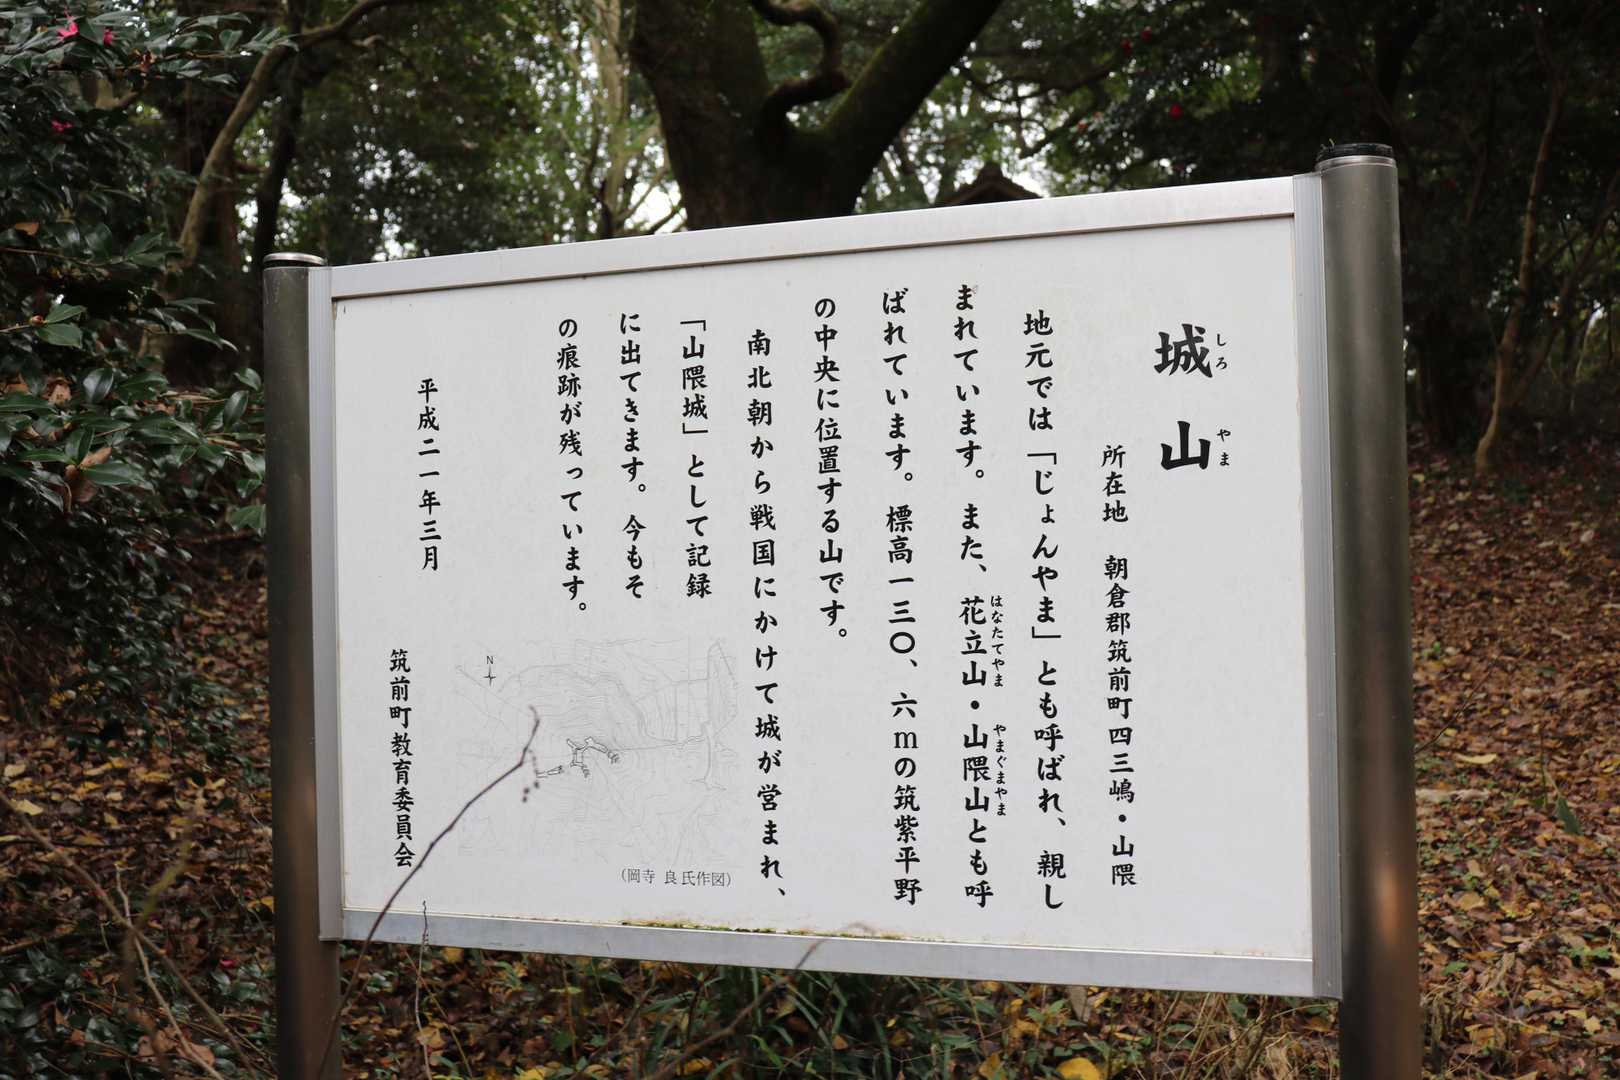 城山
しろ
やま
所在地　朝倉郡筑前町四三嶋・山隈
地元では「じょんやま」とも呼ばれ、親し
まれています。また、花立山・山隈山とも呼
はなたてやま
やまぐまやま
ばれています。標高一三〇、六mの筑紫平野
の中央に位置する山です。
南北朝から戦国にかけて城が営まれ、
「山隈城」として記録
に出てきます。今もそ
の痕跡が残っています。
N
（岡寺 良氏作図）
平成二一年三月
筑前町教育委員会